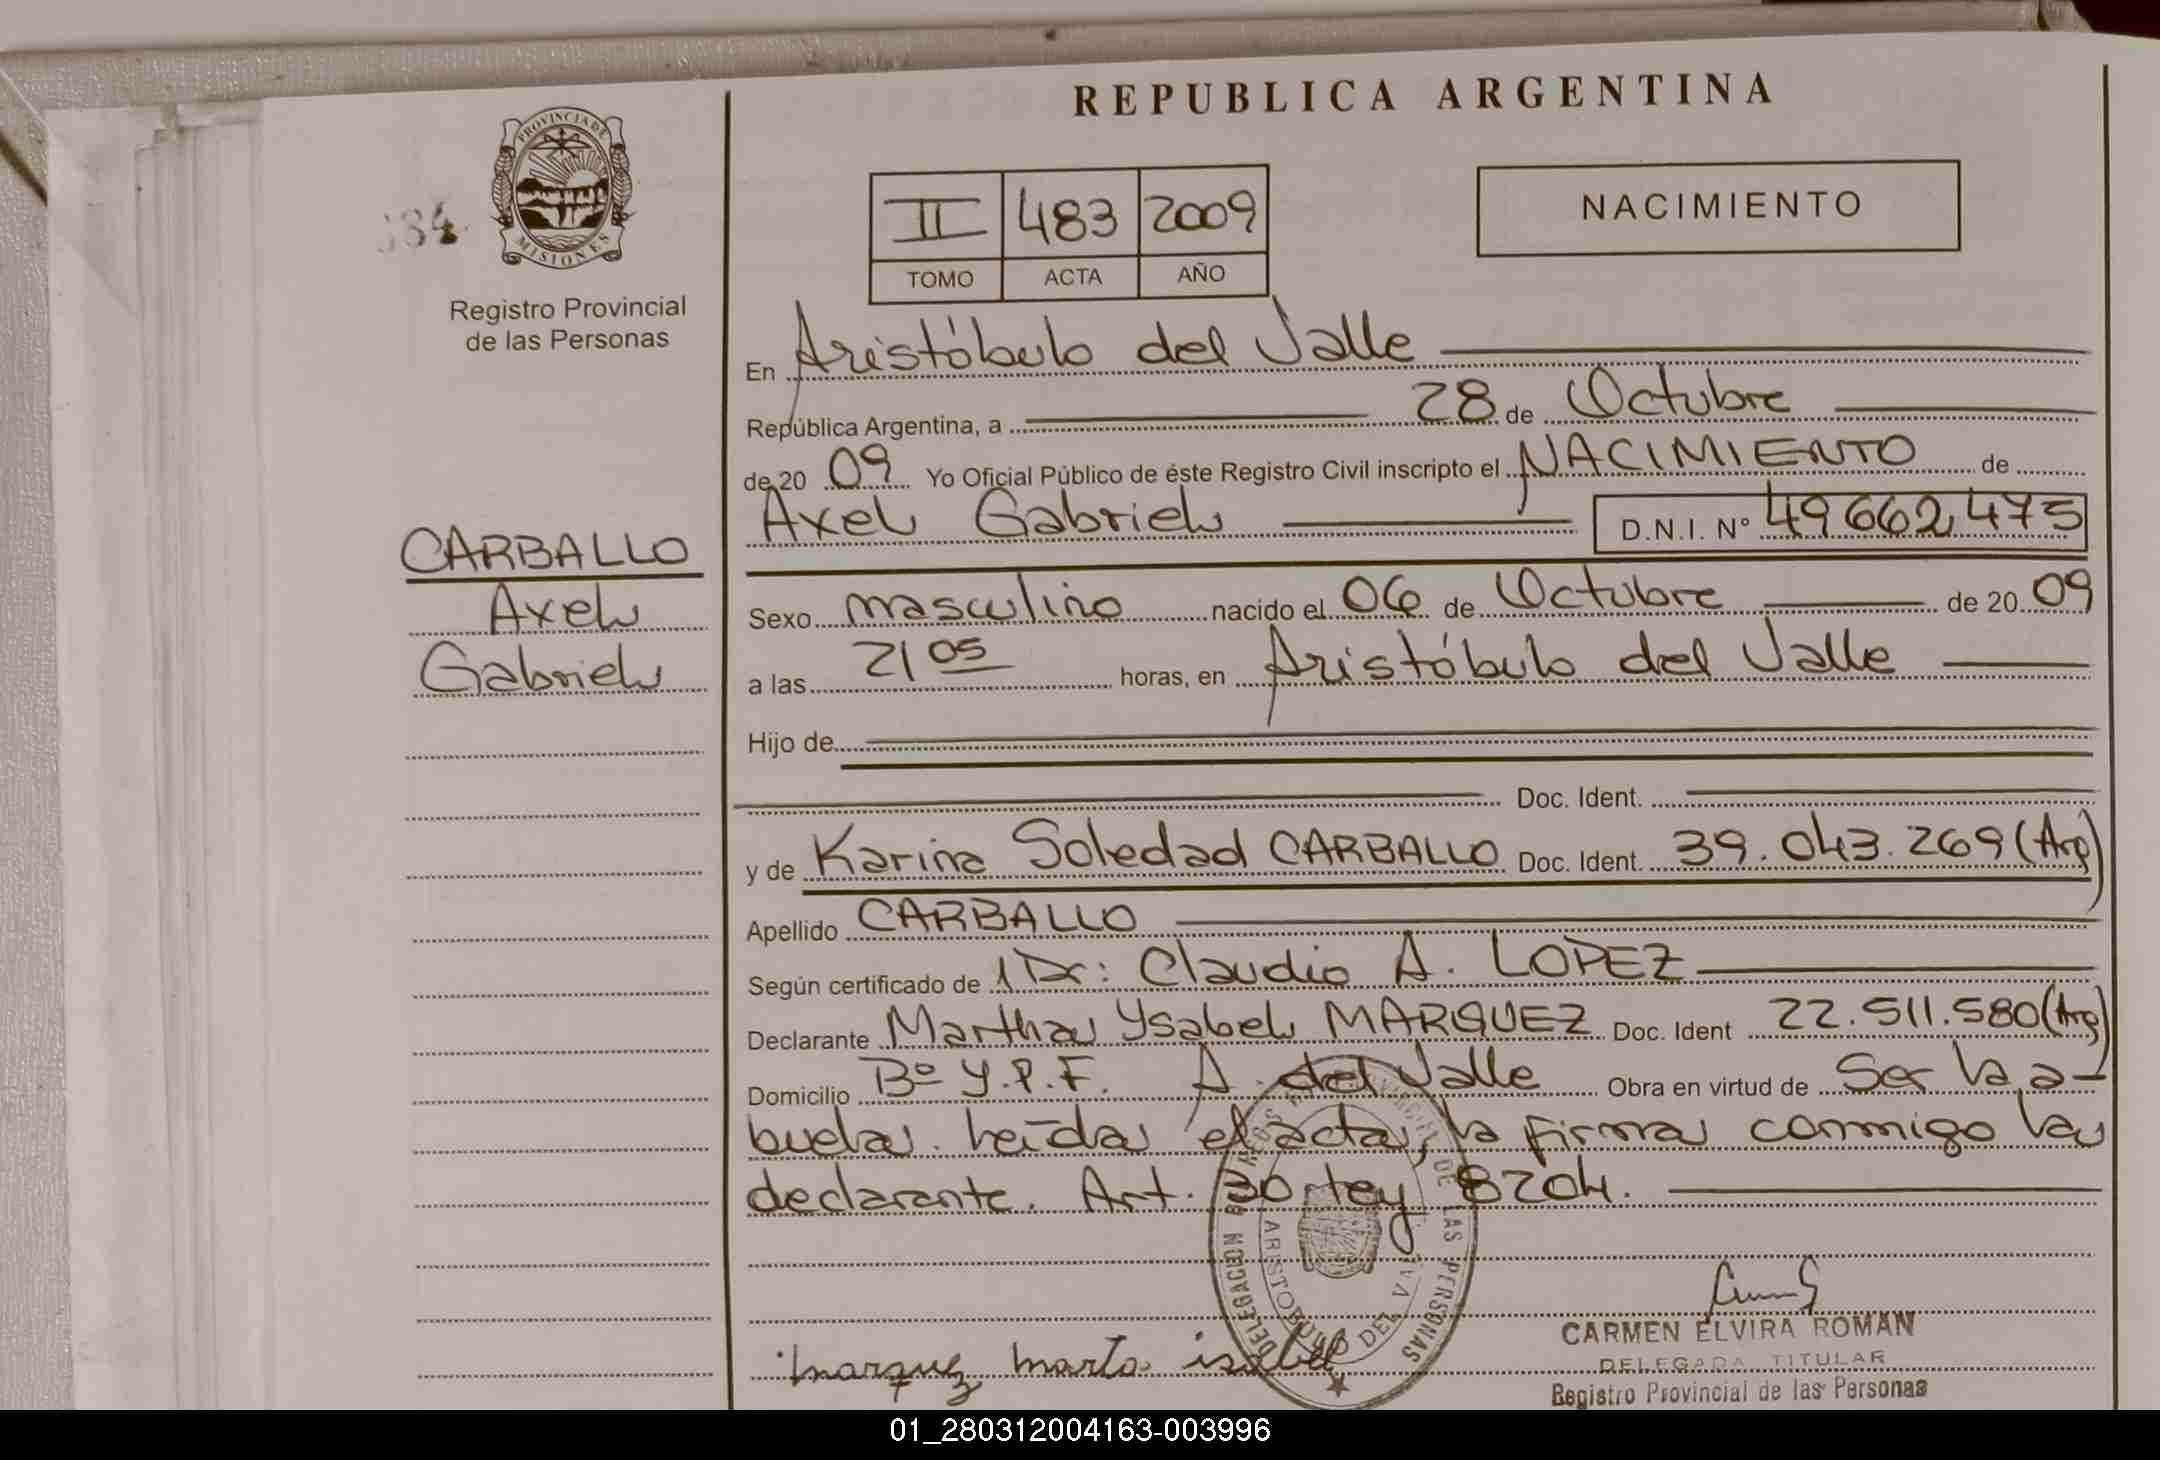 REPUBLICA ARGENTINA
PROVINCIA DE
MISIONES
Registro Provincial
de las Personas
II 483 2009
TOMO ACTA AÑO
NACIMIENTO
En Aristóbulo del Valle
República Argentina, a 28 de Octubre
de 20 09 Yo Oficial Público de éste Registro Civil inscripto el NACIMIENTO de
Axel Gabriel D.N.I. Nº 49662475
CARBALLO
Axel
Gabriel
Sexo masculino nacido el 06 de Octubre de 20 09
a las 21 05 horas, en Aristóbulo del Valle
Hijo de
Doc. Ident.
y de Karina Soledad CARBALLO Doc. Ident. 39.043.269 (Arg)
Apellido CARBALLO
Según certificado de 1 Dr: Claudio A. LOPEZ
Declarante Martha Ysabel MARQUEZ Doc. Ident 22.511.580 (Arg)
Domicilio Bº Y.P.F. A. del Valle Obra en virtud de Ser la a-
buela. Leída el acta, la firma conmigo la
declarante. Art. 30 Ley 8204.
DELEGACION DE LAS PERSONAS
ARISTOBULO DEL VALLE
marquez marta isabel
CARMEN ELVIRA ROMAN
DELEGADA TITULAR
Registro Provincial de las Personas
01_280312004163-003996